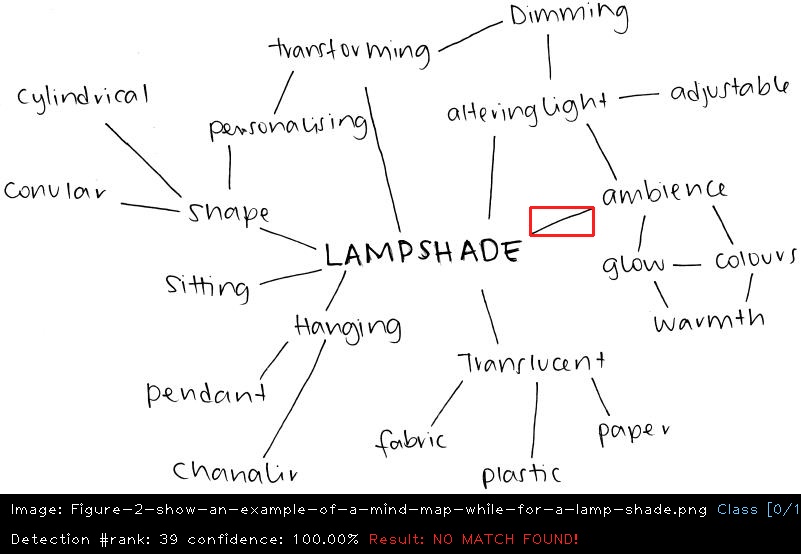 Dimming
transforming
cylindrical
adjustable
altering light
personalising
conular
ambience
shape
LAMPSHADE
glow
colours
sitting
warmth
Hanging
Translucent
pendant
fabric
paper
chanalir
plastic
Image: Figure-2-show-an-example-of-a-mind-map-while-for-a-lamp-shade.png Class [0/1
Detection #rank: 39 confidence: 100.00% Result: NO MATCH FOUND!